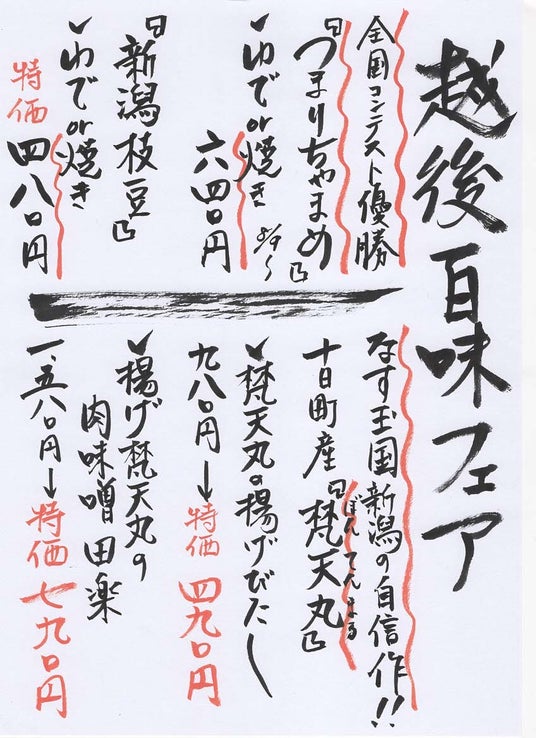 越後百味フェア
全国コンテスト優勝
『つまりちゃまめ』
✓ゆでor焼き 8/9〜
六四〇円
『新潟枝豆』
✓ゆでor焼き
特価 四八〇円
なす王国新潟の自信作!!
十日町産『梵天丸』
ぼんてんまる
✓梵天丸の揚げびたし
九八〇円→特価 四九〇円
✓揚げ梵天丸の
肉味噌田楽
一、五八〇円→特価 七九〇円